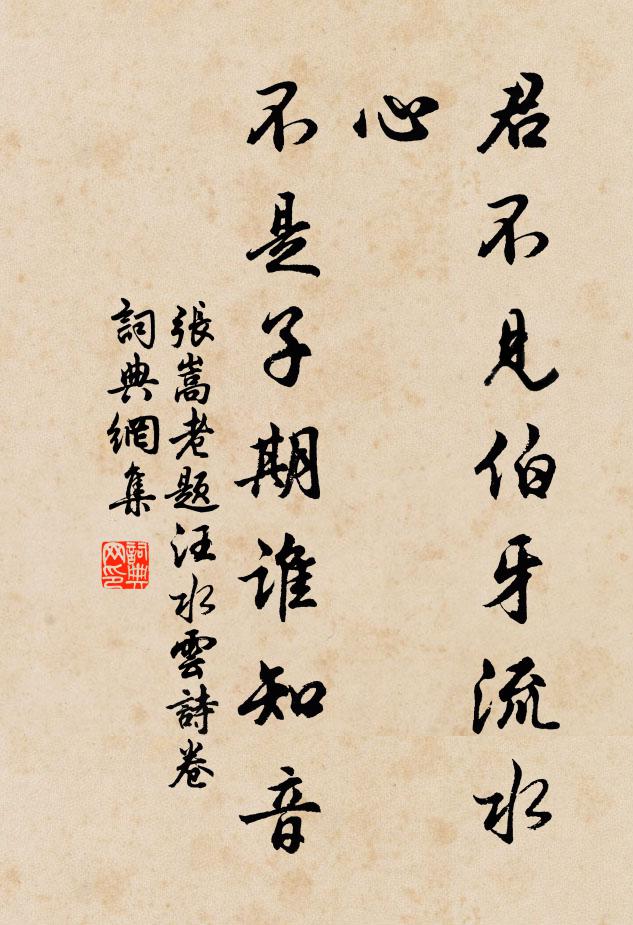 君不見伯牙流水
心
不是子期誰知音
張嵩老題汪水雲詩卷
詞典網集
詞典
网印